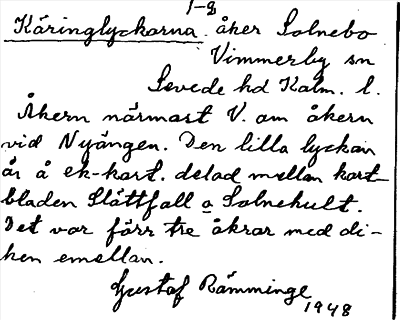 1-2
Käringlyckorna. åker Solnebo
Vimmerby sn
Sevede hd Kalm. l.
Åkern närmast V. om åkern
vid Nyängen. Den lilla lyckan
är å ek-kart. delad mellan kart
bladen Slättfall o Solnehult.
Det var förr tre åkrar med di-
ken emellan.
Gustaf Rämminge
1948